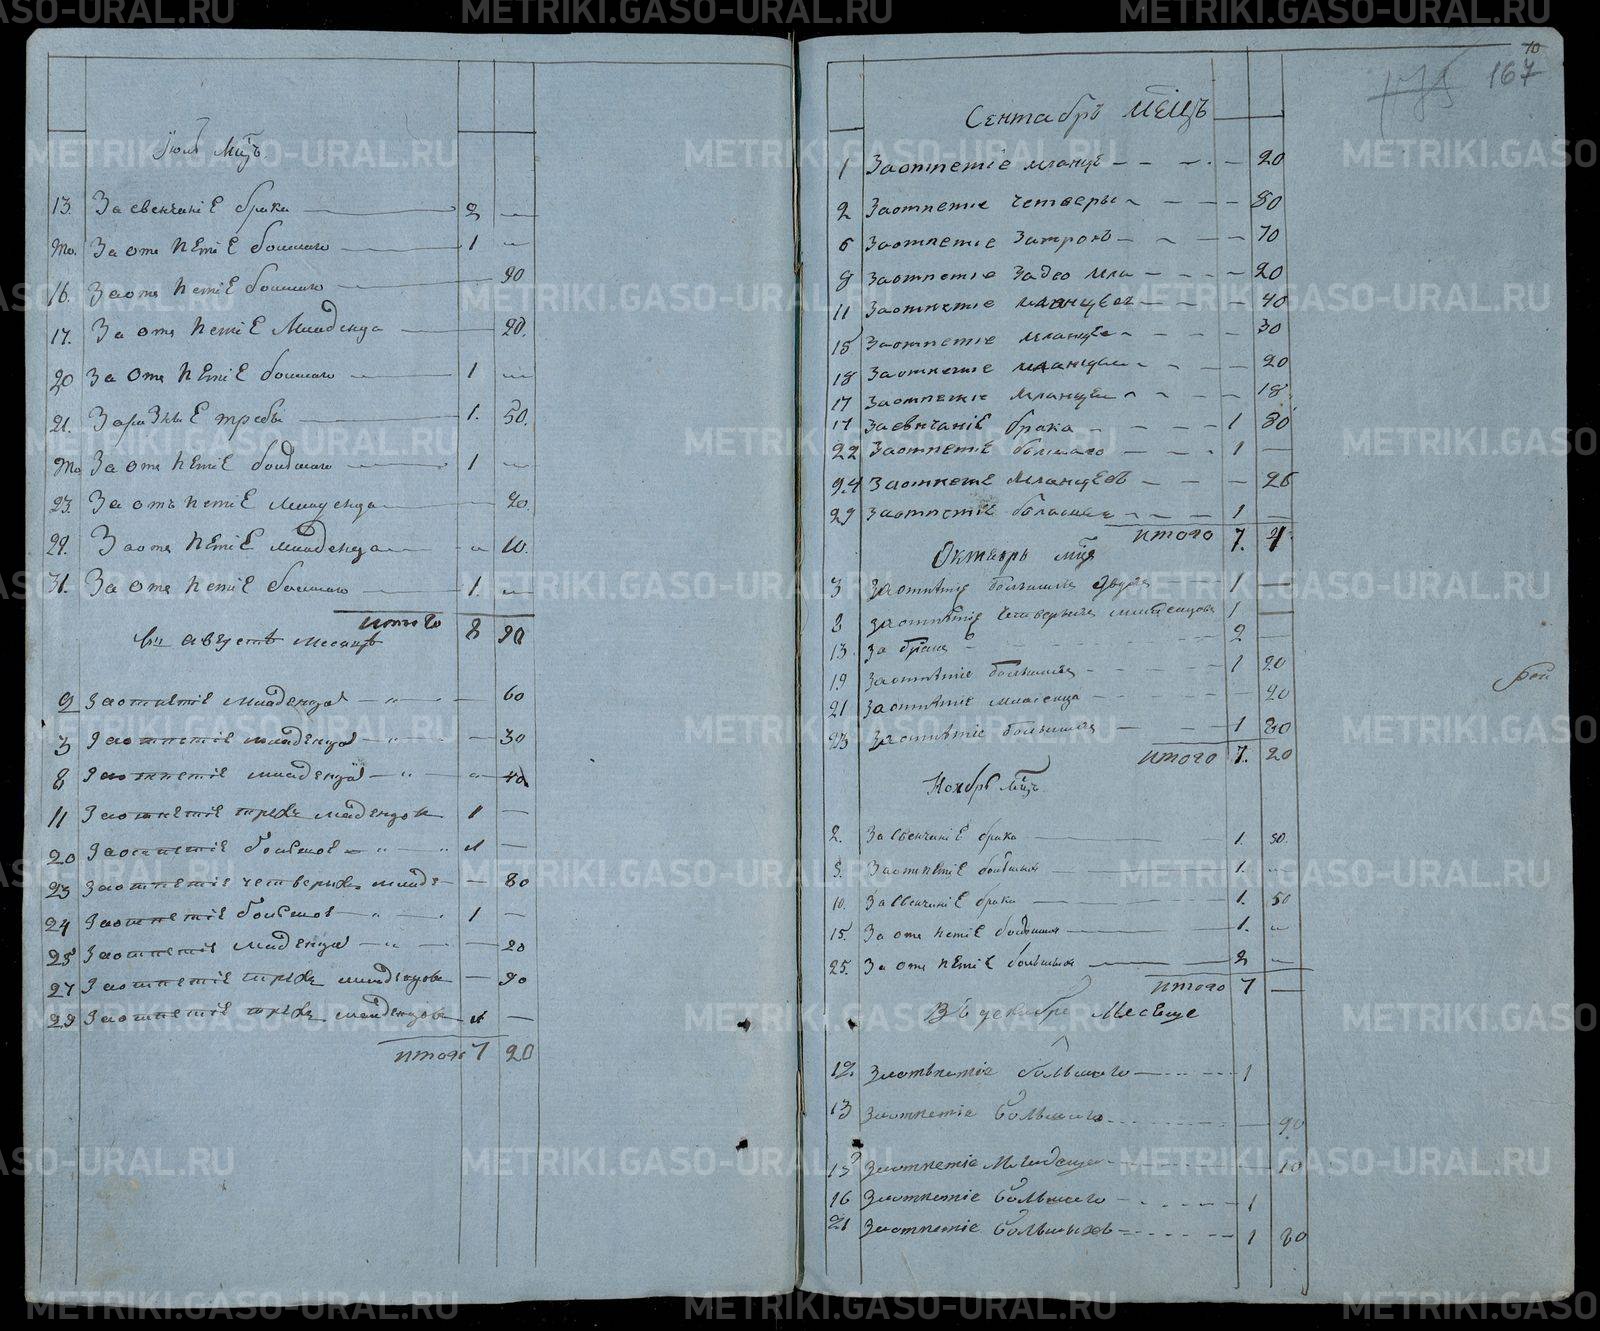 Июля Мцъ.
13. За свенчаніЕ брака 2 —
То. За оте пЕтіЕ большаго 1 —
16. За оте петіЕ большаго 90
17. За оте петіЕ Младенца 20.
20 За Оте пЕтіЕ большаго 1 —
21. За разныЕ требы 1. 50.
То За оте пЕтіЕ большаго 1 —
23. За отъ петіЕ младенца 20.
29. За оте пЕтіЕ младенца 10.
31. За Оте петіЕ большаго 1. —
итого 8 90
въ августѣ месяцѣ
2 Заотпетіе младенца — " — 60
3 Заотпетіе младенца — " — 30
8 Заотпетіе младенца — " — 40
11 Заотпетіе трехъ младенцов 1 —
20 Заотпетіе болшов — " — 1 —
23 Заотпетіе четверыхъ младе — 80
24 Заотпетіе болшов — " — 1 —
25 Заотпетіе младенца — " — 20
27 Заотпетіе трехъ младенцовъ — 90
29 Заотпетіе трехъ младенцовъ 1 —
итого 7 20
10
167
Сентабръ МЕЦЪ
1 Заотпетіе мланце 20
2 Заотпетіе четверы 80
6 Заотпетіе Затроих 70
8 Заотпетіе Задво мла 20
11 Заотпетіе мланцвеи 40
15 Заотпетіе мланце 30
18 Заотпетіе мланцеи 20
17 Заотпетіе Мланцеи 18
17 ЗасвнчаніЕ брака 1 80
22 Заотпетіе болшаго 1 —
24 Заотпетіе Мланцеов 26
29 Заотпетіе болшаго 1 —
итого 7.
Октябрь мця
3 Заотпѣтіе большихъ двухъ 1 —
8 Заотпѣтіе Четверыхъ младенцовъ 1 —
13 За бракъ 2 —
19 Заотпѣтіе большихъ 1 20
21 Заотпѣтіе младенца 20
23 Заотпѣтіе большихъ 1 80
итого 7. 20
Ноябрь Мцъ
2. За свенчаніЕ брака 1. 50.
5. За отпѣтіЕ большихъ 1. —
10. За свенчаніЕ брака 1. 50
15. За оте петіЕ большихъ 1. —
25. За оте пЕтіЕ большихъ 2 —
итого 7 —
ВЪ декабре Месеце
12. Заотъпетіе большого 1
13 Заотпетіе Большого 90
15 Заотпетіе Младенца 10
16 Заотпетіе Большого 1
21 Заотпетіе Большихъ 1 80
METRIKI.GASO-URAL.RU